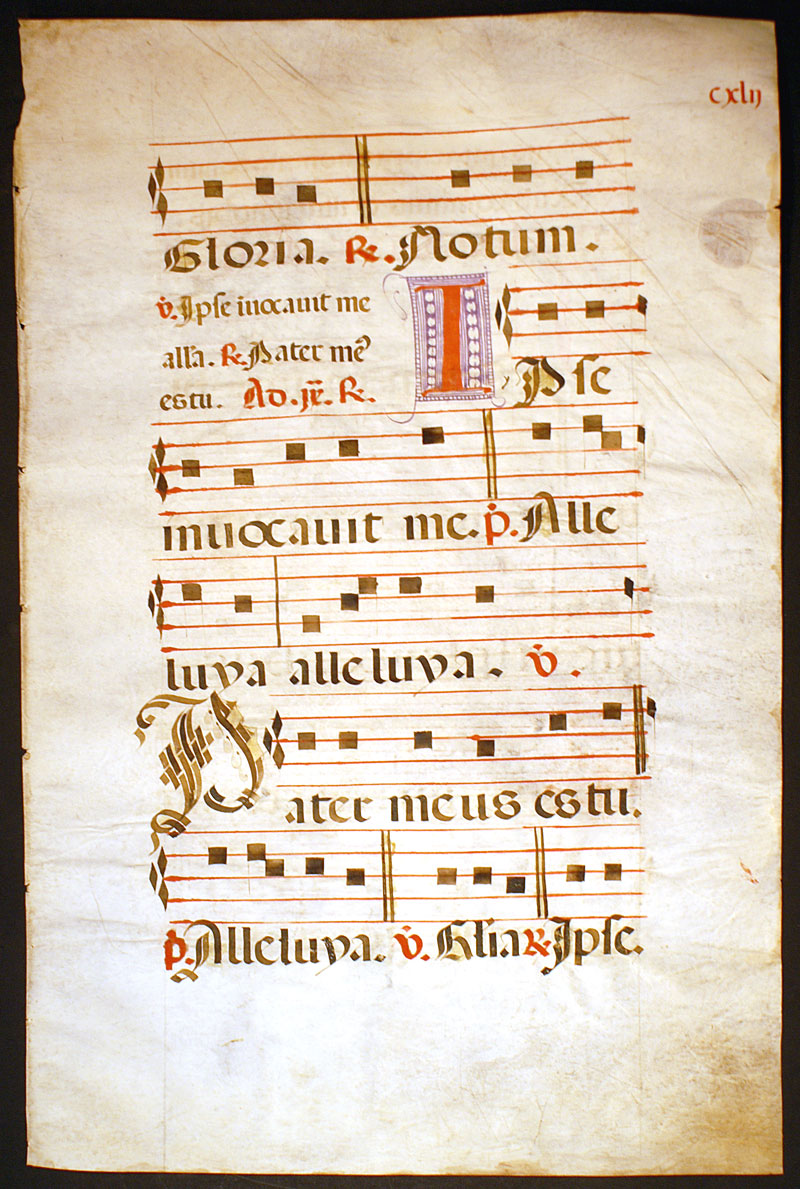 cxlij
Gloria. ℟. Notum.
℣. Ipse inuocauit me
all'a. ℟. Pater me᾽
es tu. Ad. ix. ℟.
IPse
inuocauit me. p. Alle
luya alleluya. ℣.
Pater meus es tu.
p. Alleluya. ℣. Gl'ia ℟ Ipse.